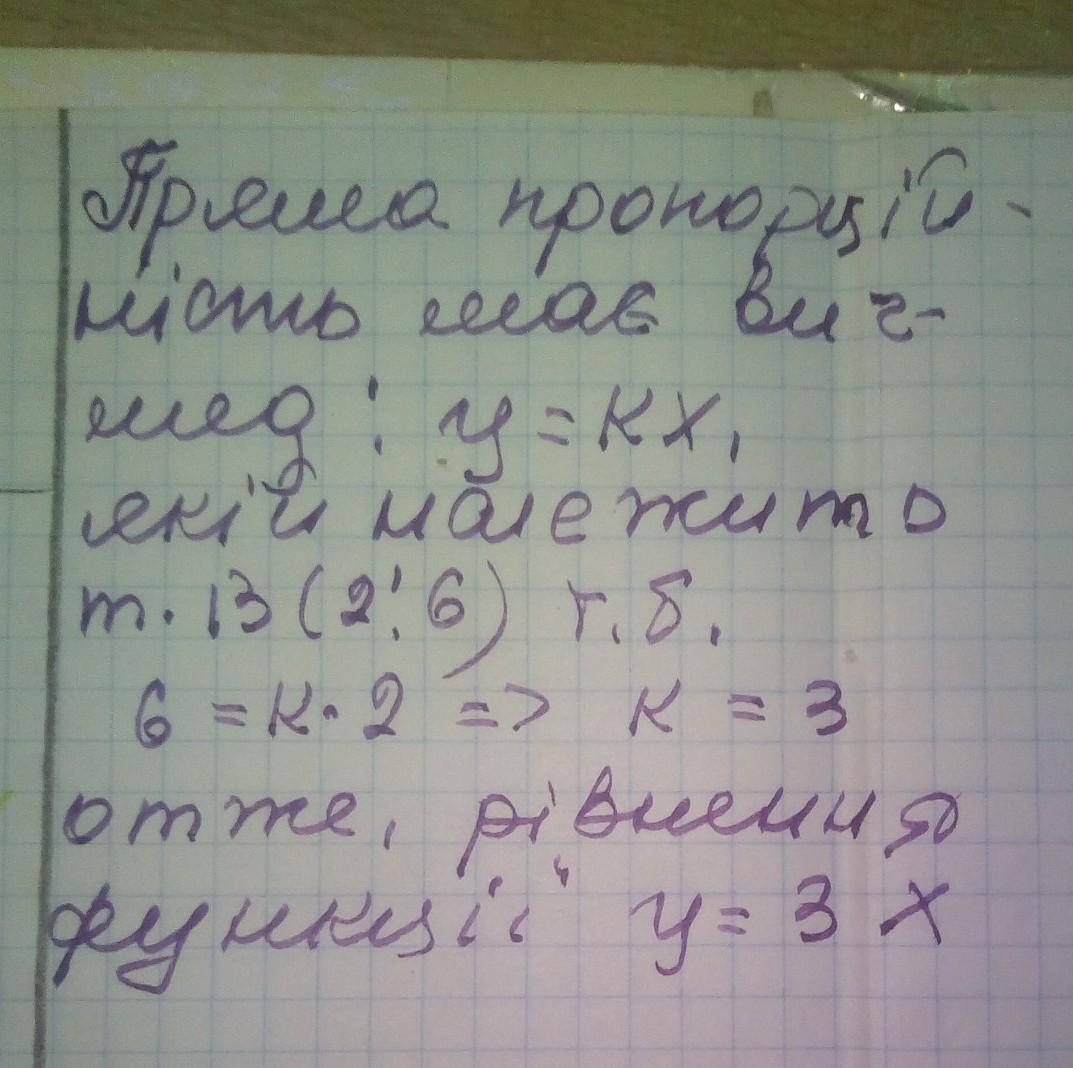 Пряма пропорцій-
ність має виг-
ляд: y=кx,
якій належить
т. В(2;6) т.б.
6 = к·2 => к = 3
отже, рівняння
функції y= 3x